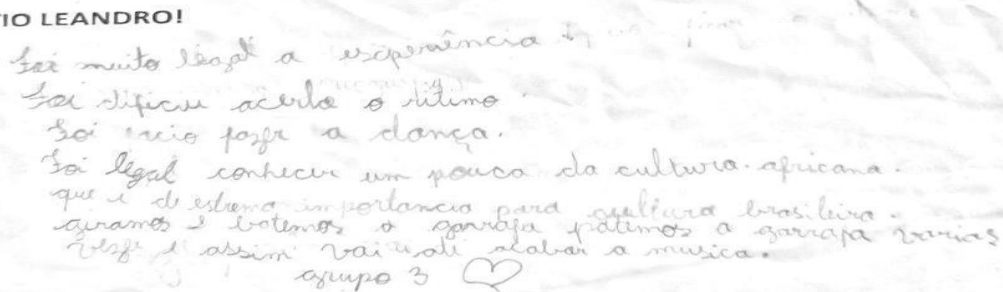 IO LEANDRO!
Foi muito legal a experiência
Foi dificiu acerta o ritimo.
Foi facer a dança.
Foi legal conhecer um pouco da cultura africana.
que é de estrema importancia para cultura brasileira.
giramos e batemos a garrafa patimos a garrafa varias
vezes e assim vai até acabar a musica.
grupo 3